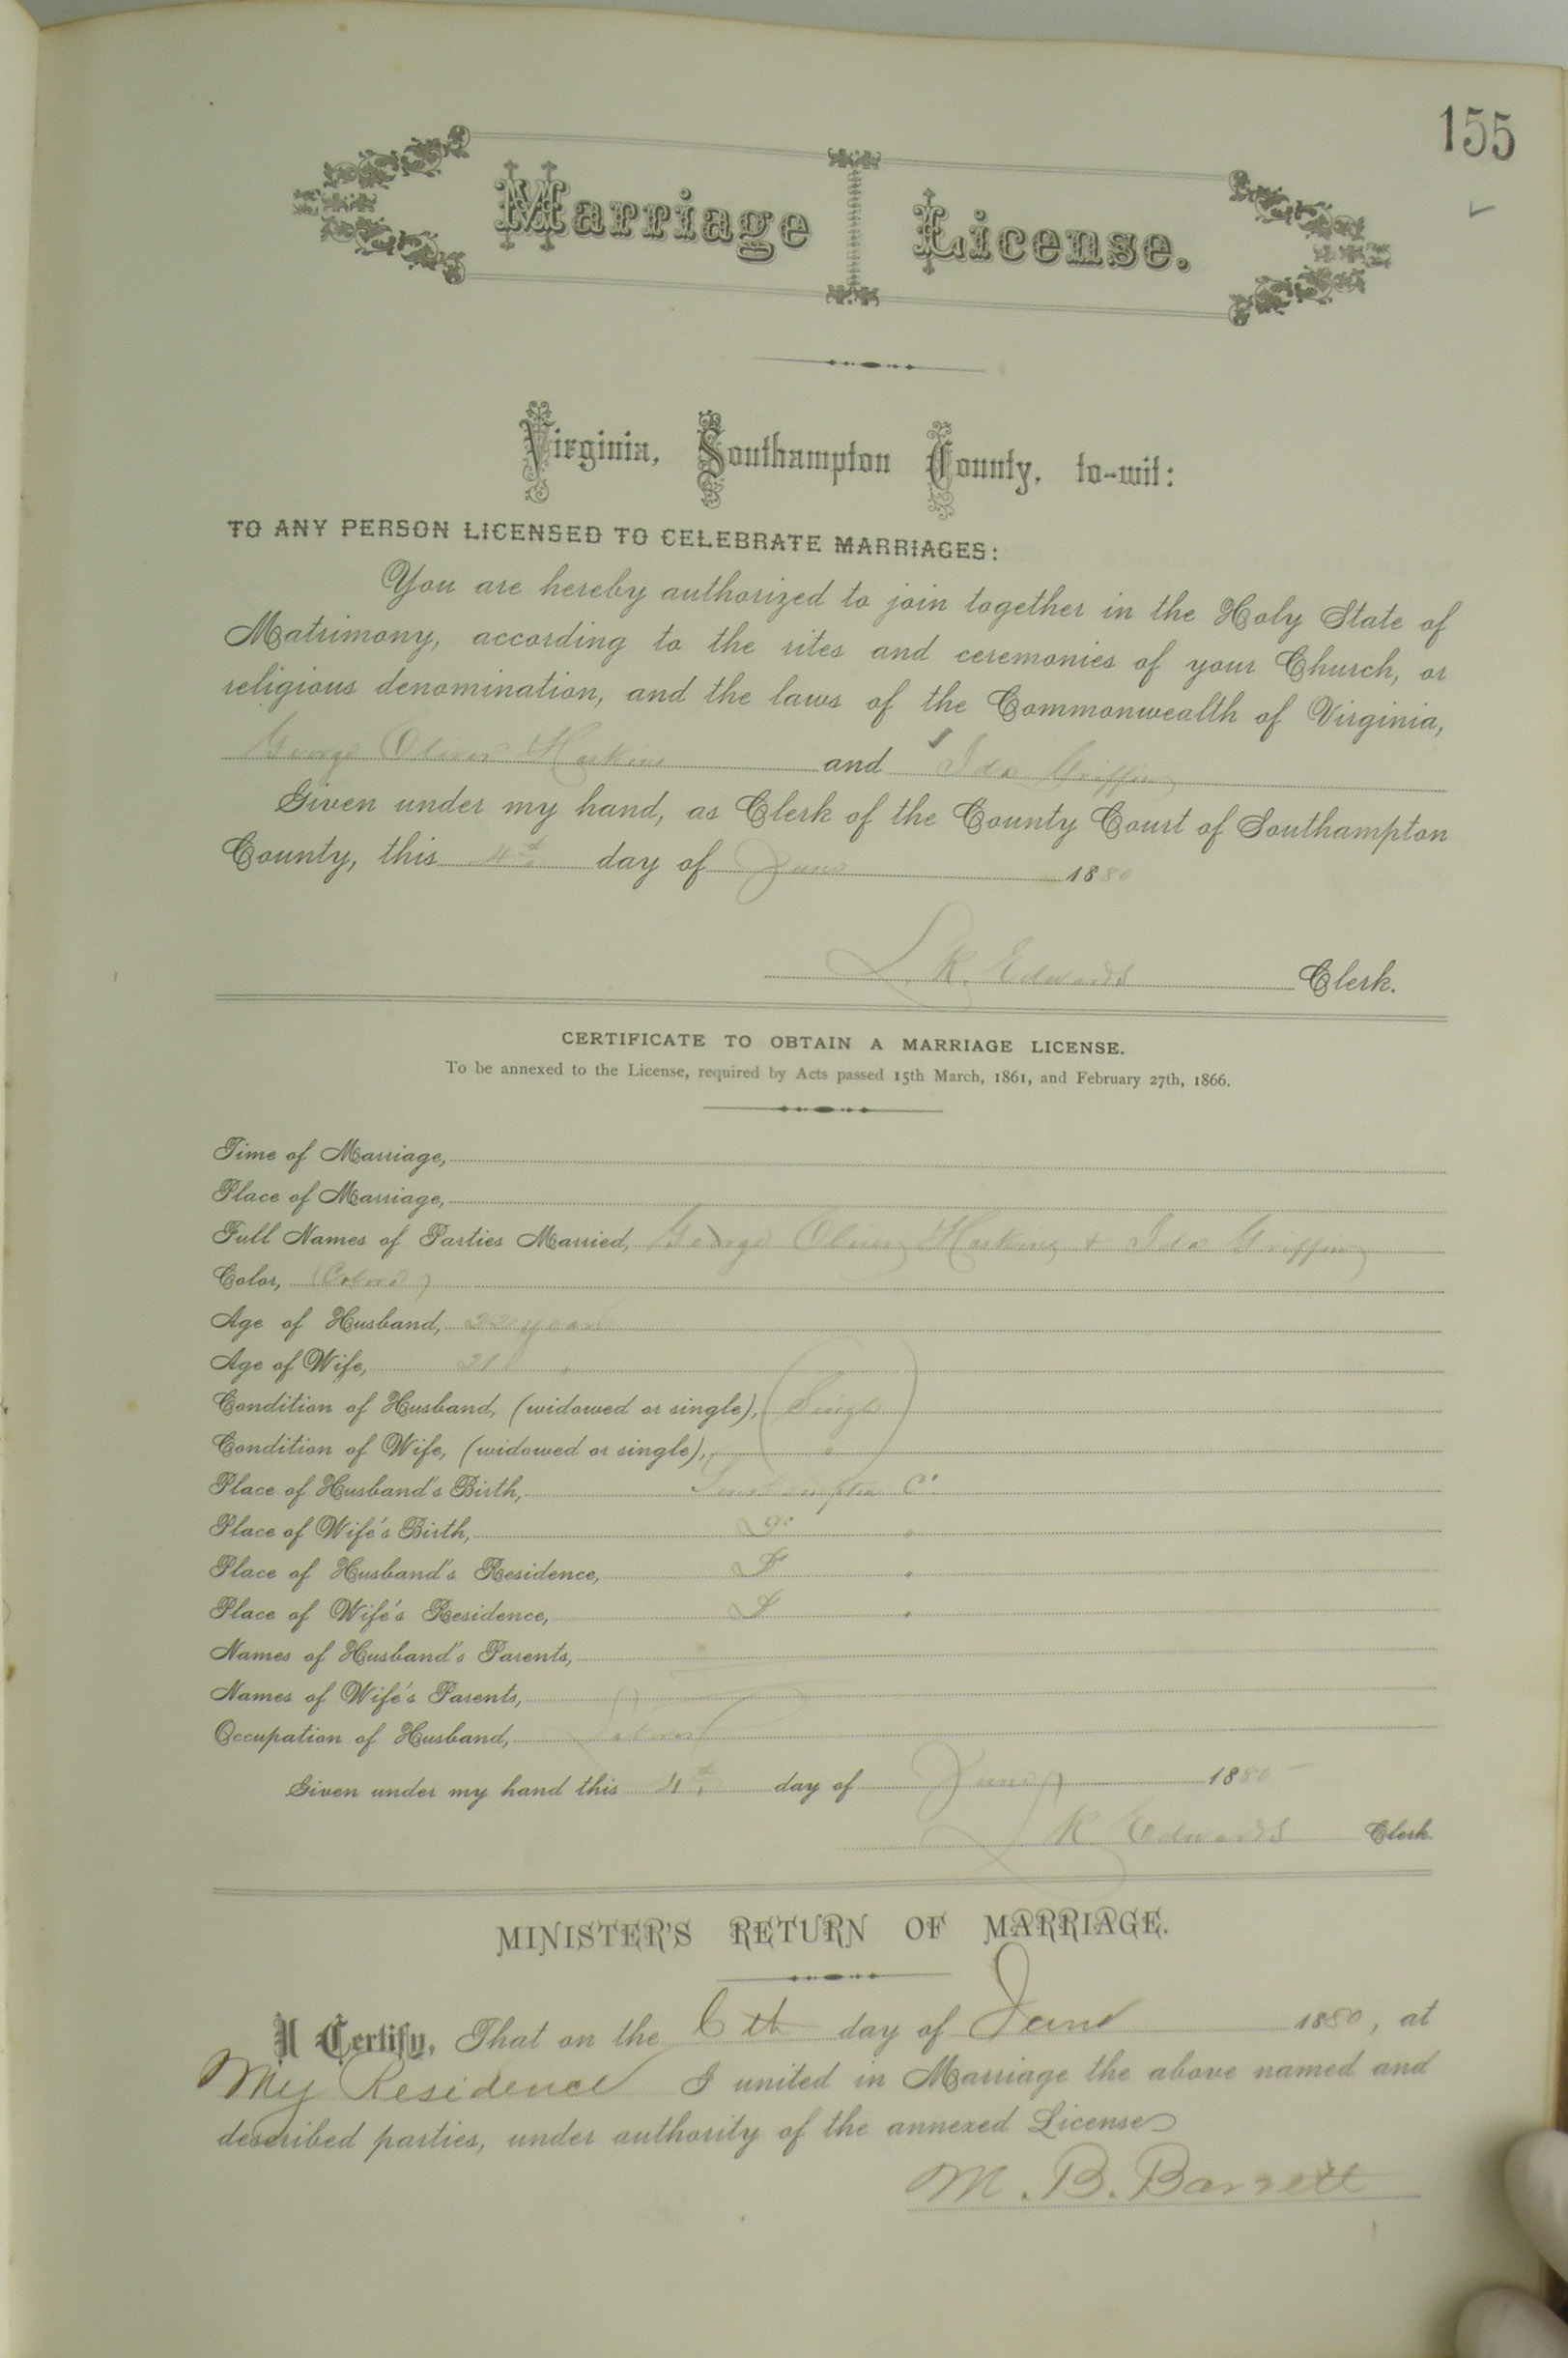 155
Marriage License.
Virginia, Southampton County, to-wit:
TO ANY PERSON LICENSED TO CELEBRATE MARRIAGES:
You are hereby authorized to join together in the Holy State of
Matrimony, according to the rites and ceremonies of your Church, or
religious denomination, and the laws of the Commonwealth of Virginia,
George Oliver Haskins and Ida Griffin
Given under my hand, as Clerk of the County Court of Southampton
County, this 4th day of June 1880
L. R. Edwards Clerk.
CERTIFICATE TO OBTAIN A MARRIAGE LICENSE.
To be annexed to the License, required by Acts passed 15th March, 1861, and February 27th, 1866.
Time of Marriage,
Place of Marriage,
Full Names of Parties Married, George Oliver Haskins + Ida Griffin
Color, (Colored)
Age of Husband, 22 years
Age of Wife, 21 "
Condition of Husband, (widowed or single), (Single)
Condition of Wife, (widowed or single), "
Place of Husband's Birth, Southampton Co
Place of Wife's Birth, Do "
Place of Husband's Residence, Do "
Place of Wife's Residence, Do "
Names of Husband's Parents,
Names of Wife's Parents,
Occupation of Husband, Laborer
Given under my hand this 4th day of June 1880
L R Edwards Clerk.
MINISTER'S RETURN OF MARRIAGE.
I Certify, That on the 6th day of June 1880, at
My Residence I united in Marriage the above named and
described parties, under authority of the annexed License
M. B. Barrett